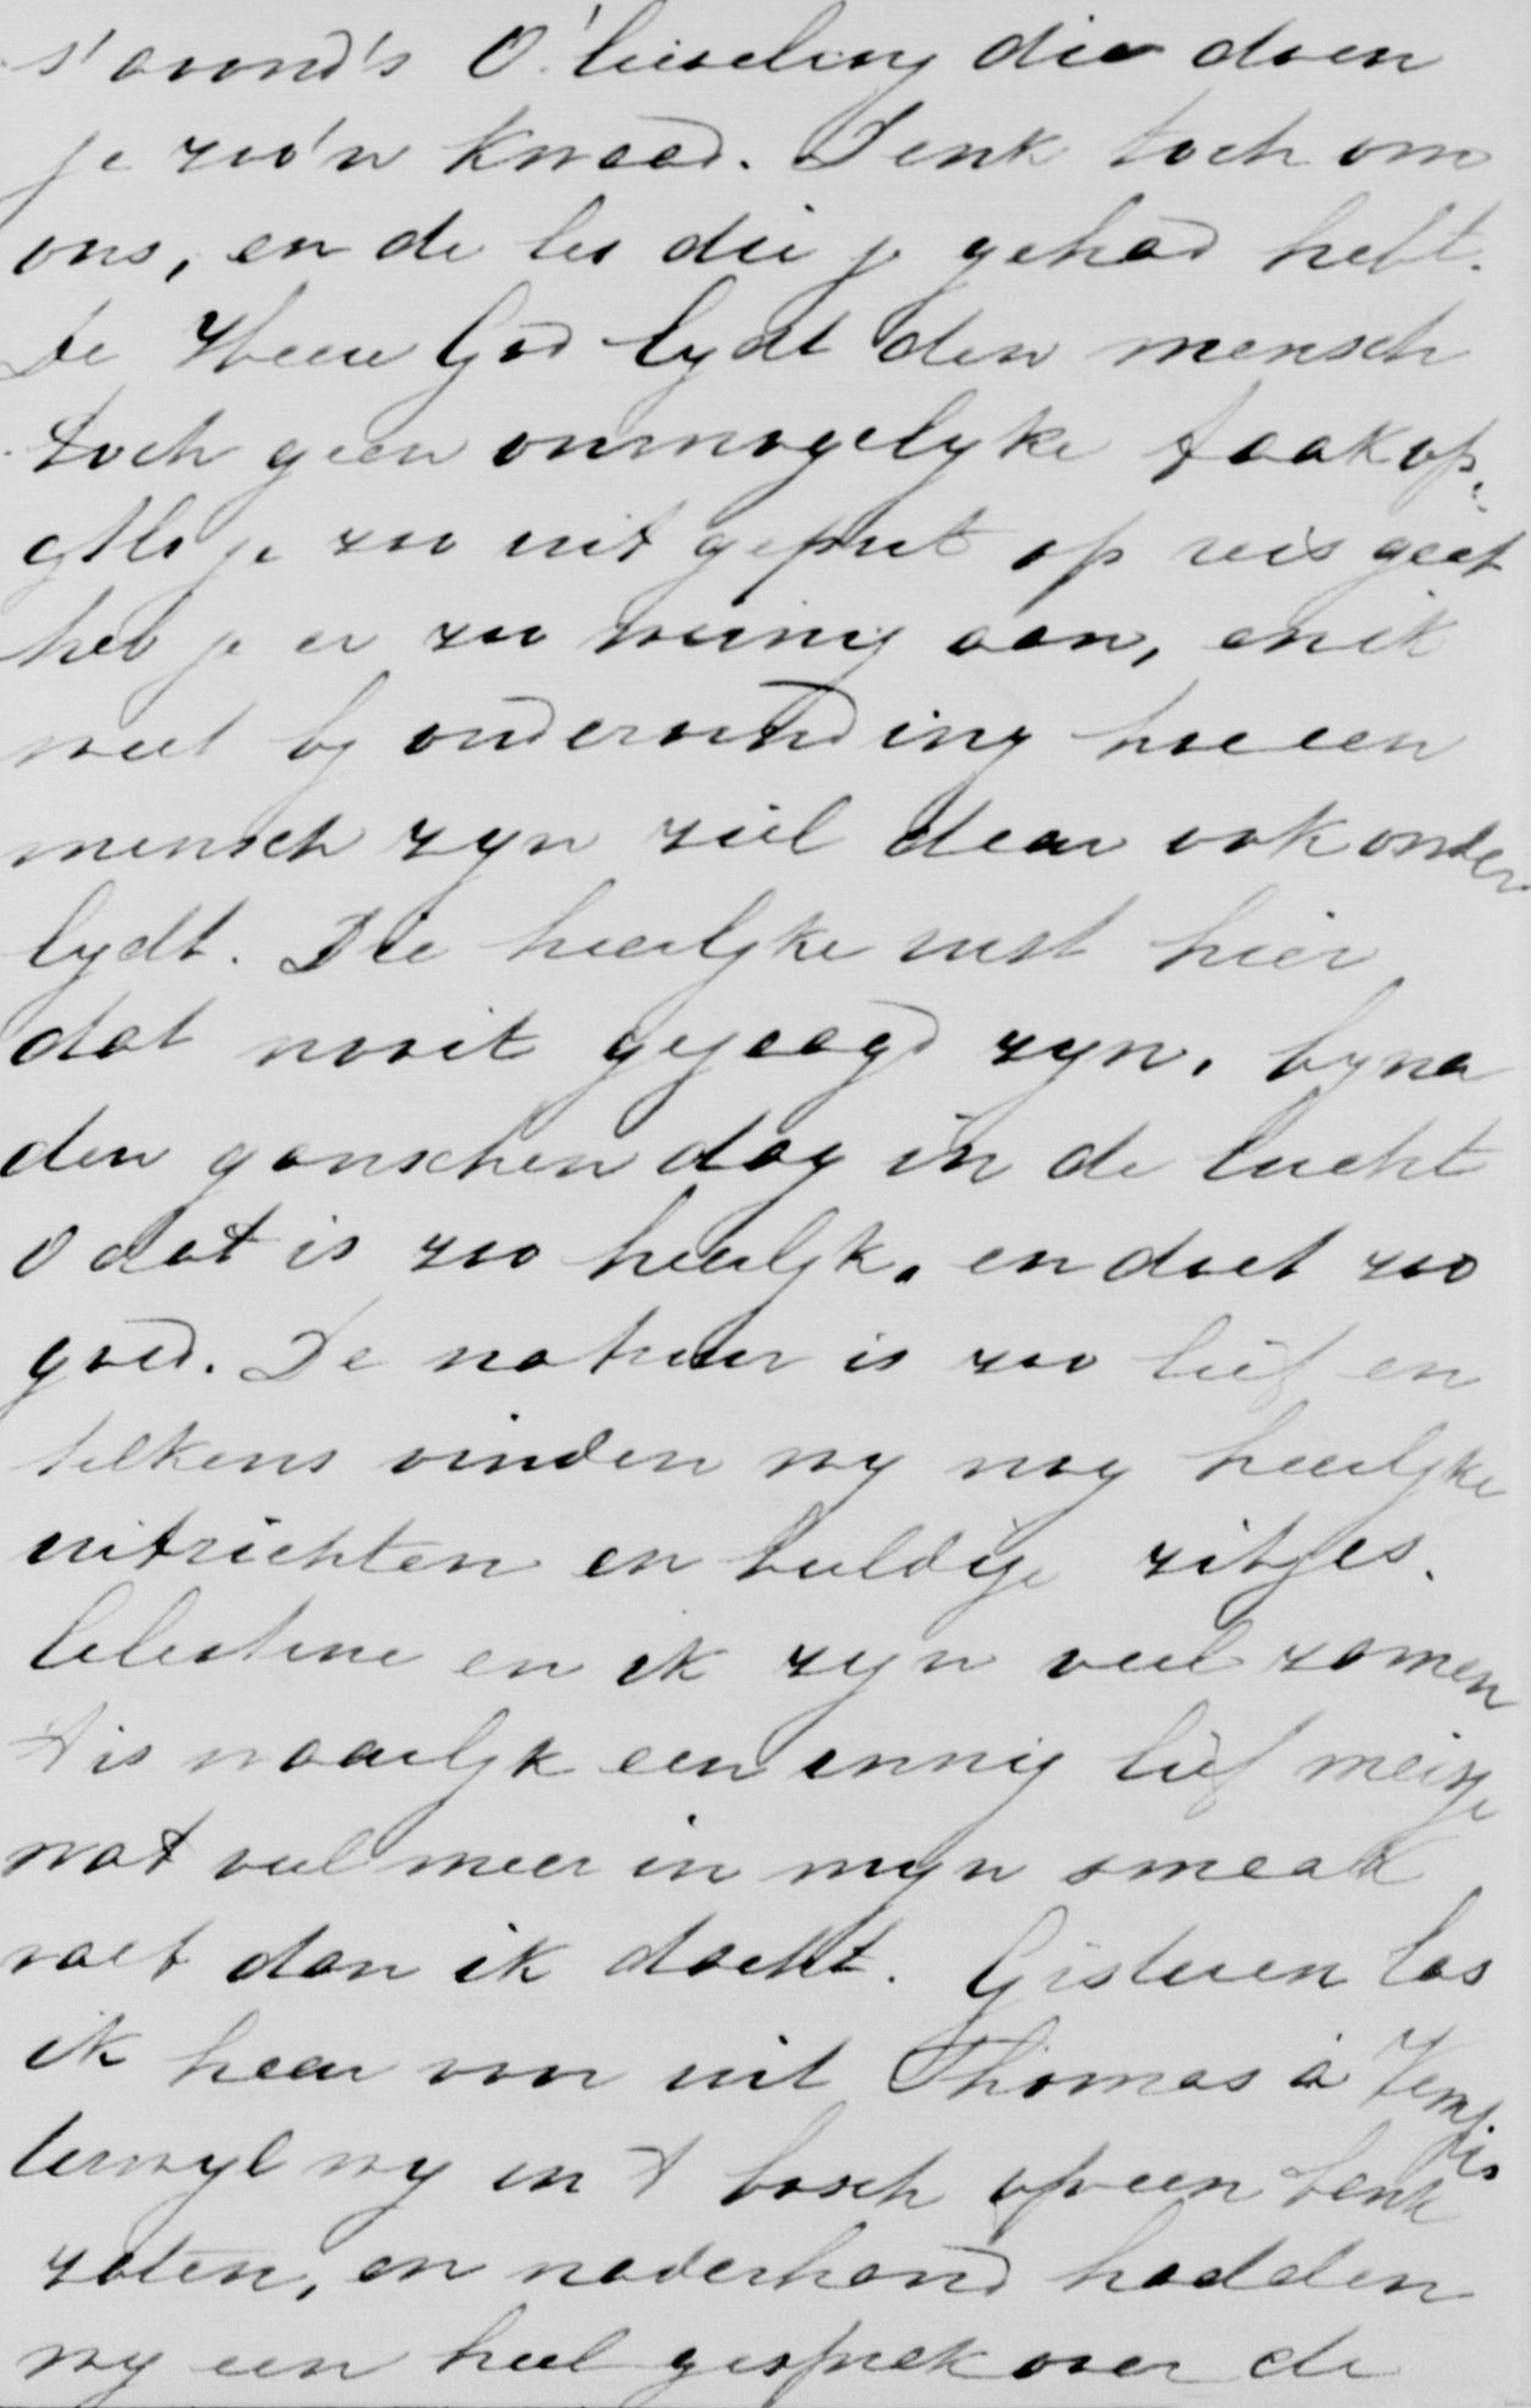 s'avond's O! lieveling die doen
je zoo'n kwaad. Denk toch om
ons, en de les die je gehad hebt.
De Heere God lydt den mensch
toch geen onmogelyke taak op.
Als je zoo uit geput op reis gaat
heb je er zoo weinig aan, en ik
weet by ondervinding hoe een
mensch zyn ziel daar ook onder
lydt. Die heerlyke rust hier
dat nooit gejaagd zyn, byna
den ganschen dag in de lucht
O dat is zoo heerlyk, en doet zoo
goed. De natuur is zoo lief en
telkens vinden wy nog heerlyke
uitzichten en beeldige zitjes.
Celestine en ik zyn veel zamen
t is waarlyk een innig lief meisje
wat veel meer in myn smaak
valt dan ik dacht. Gisteren las
ik haar voor uit Thomas à Kempis
terwyl wy in t bosch op een bank
zaten, en naderhand hadden
wy een heel gesprek over de